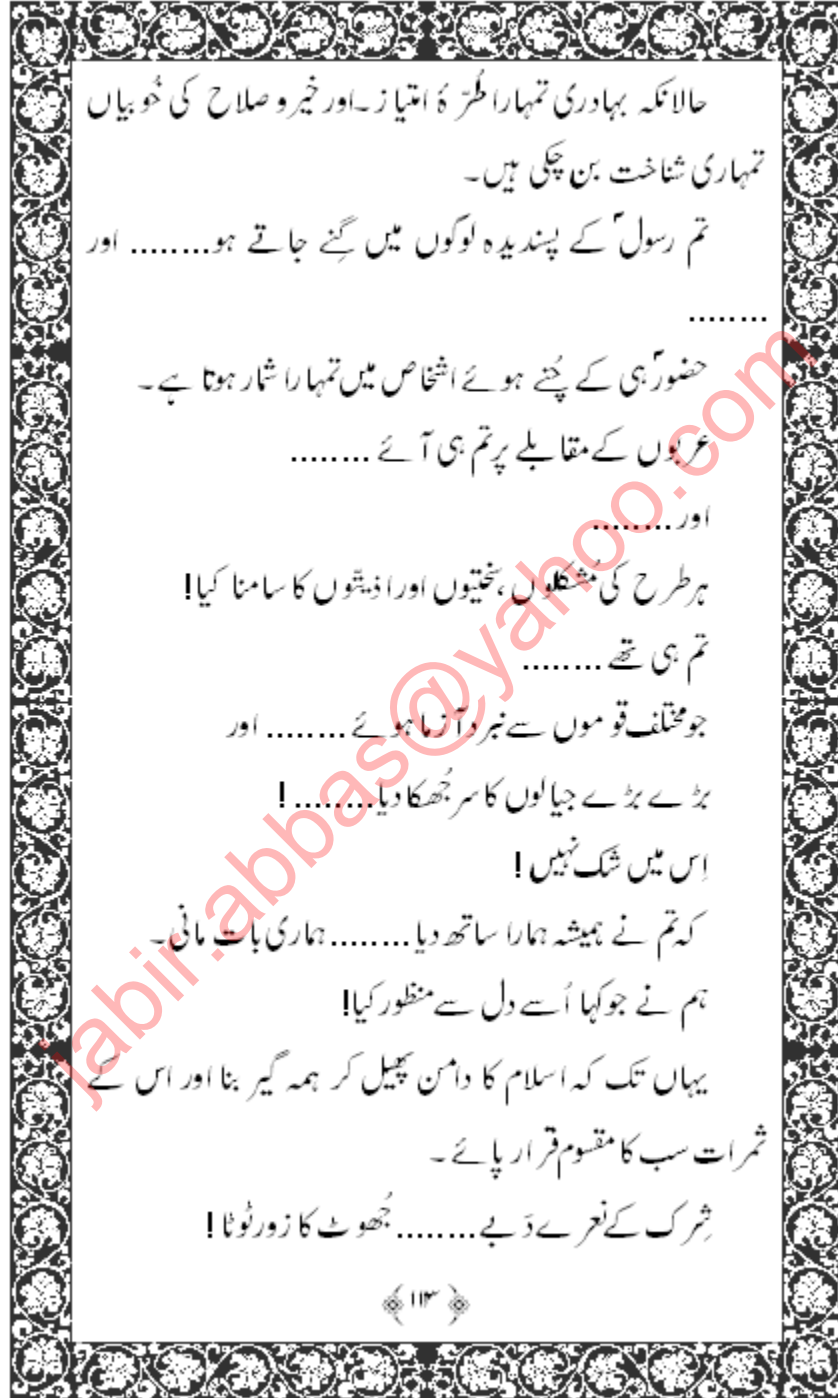 حالانکہ بہادری تمہارا طُرّۂ امتیاز۔اور خیر و صلاح کی خُوبیاں
تمہاری شناخت بن چکی ہیں۔
تم رسولؐ کے پسندیدہ لوگوں میں گِنے جاتے ہو........ اور
........
حضورؐ ہی کے چُنے ہوئے اشخاص میں تمہارا شمار ہوتا ہے۔
عربوں کے مقابلے پر تم ہی آئے ........
اور ........
ہر طرح کی مُشکلوں ،سختیوں اور اذیتّوں کا سامنا کیا!
تم ہی تھے ........
جو مختلف قوموں سے نبرد آزما ہوئے ........ اور
بڑے بڑے جیالوں کا سر جُھکا دیا........ !
اِس میں شک نہیں !
کہ تم نے ہمیشہ ہمارا ساتھ دیا ........ ہماری بات مانی۔
ہم نے جو کہا اُسے دل سے منظور کیا!
یہاں تک کہ اسلام کا دامن پھیل کر ہمہ گیر بنا اور اس کے
ثمرات سب کا مقسوم قرار پائے ۔
شِرک کے نعرے دَبے ........ جُھوٹ کا زور ٹوٹا !
﴿۱۱۳﴾
jabir.abbas@yahoo.com